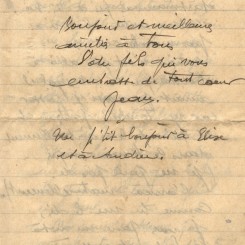 Bonjour et meilleures
amitiés à Tous
Votre fils qui vous
embrasse de tout coeur
Jean.
Un p'tit bonjour à Elise
et à Andrée.